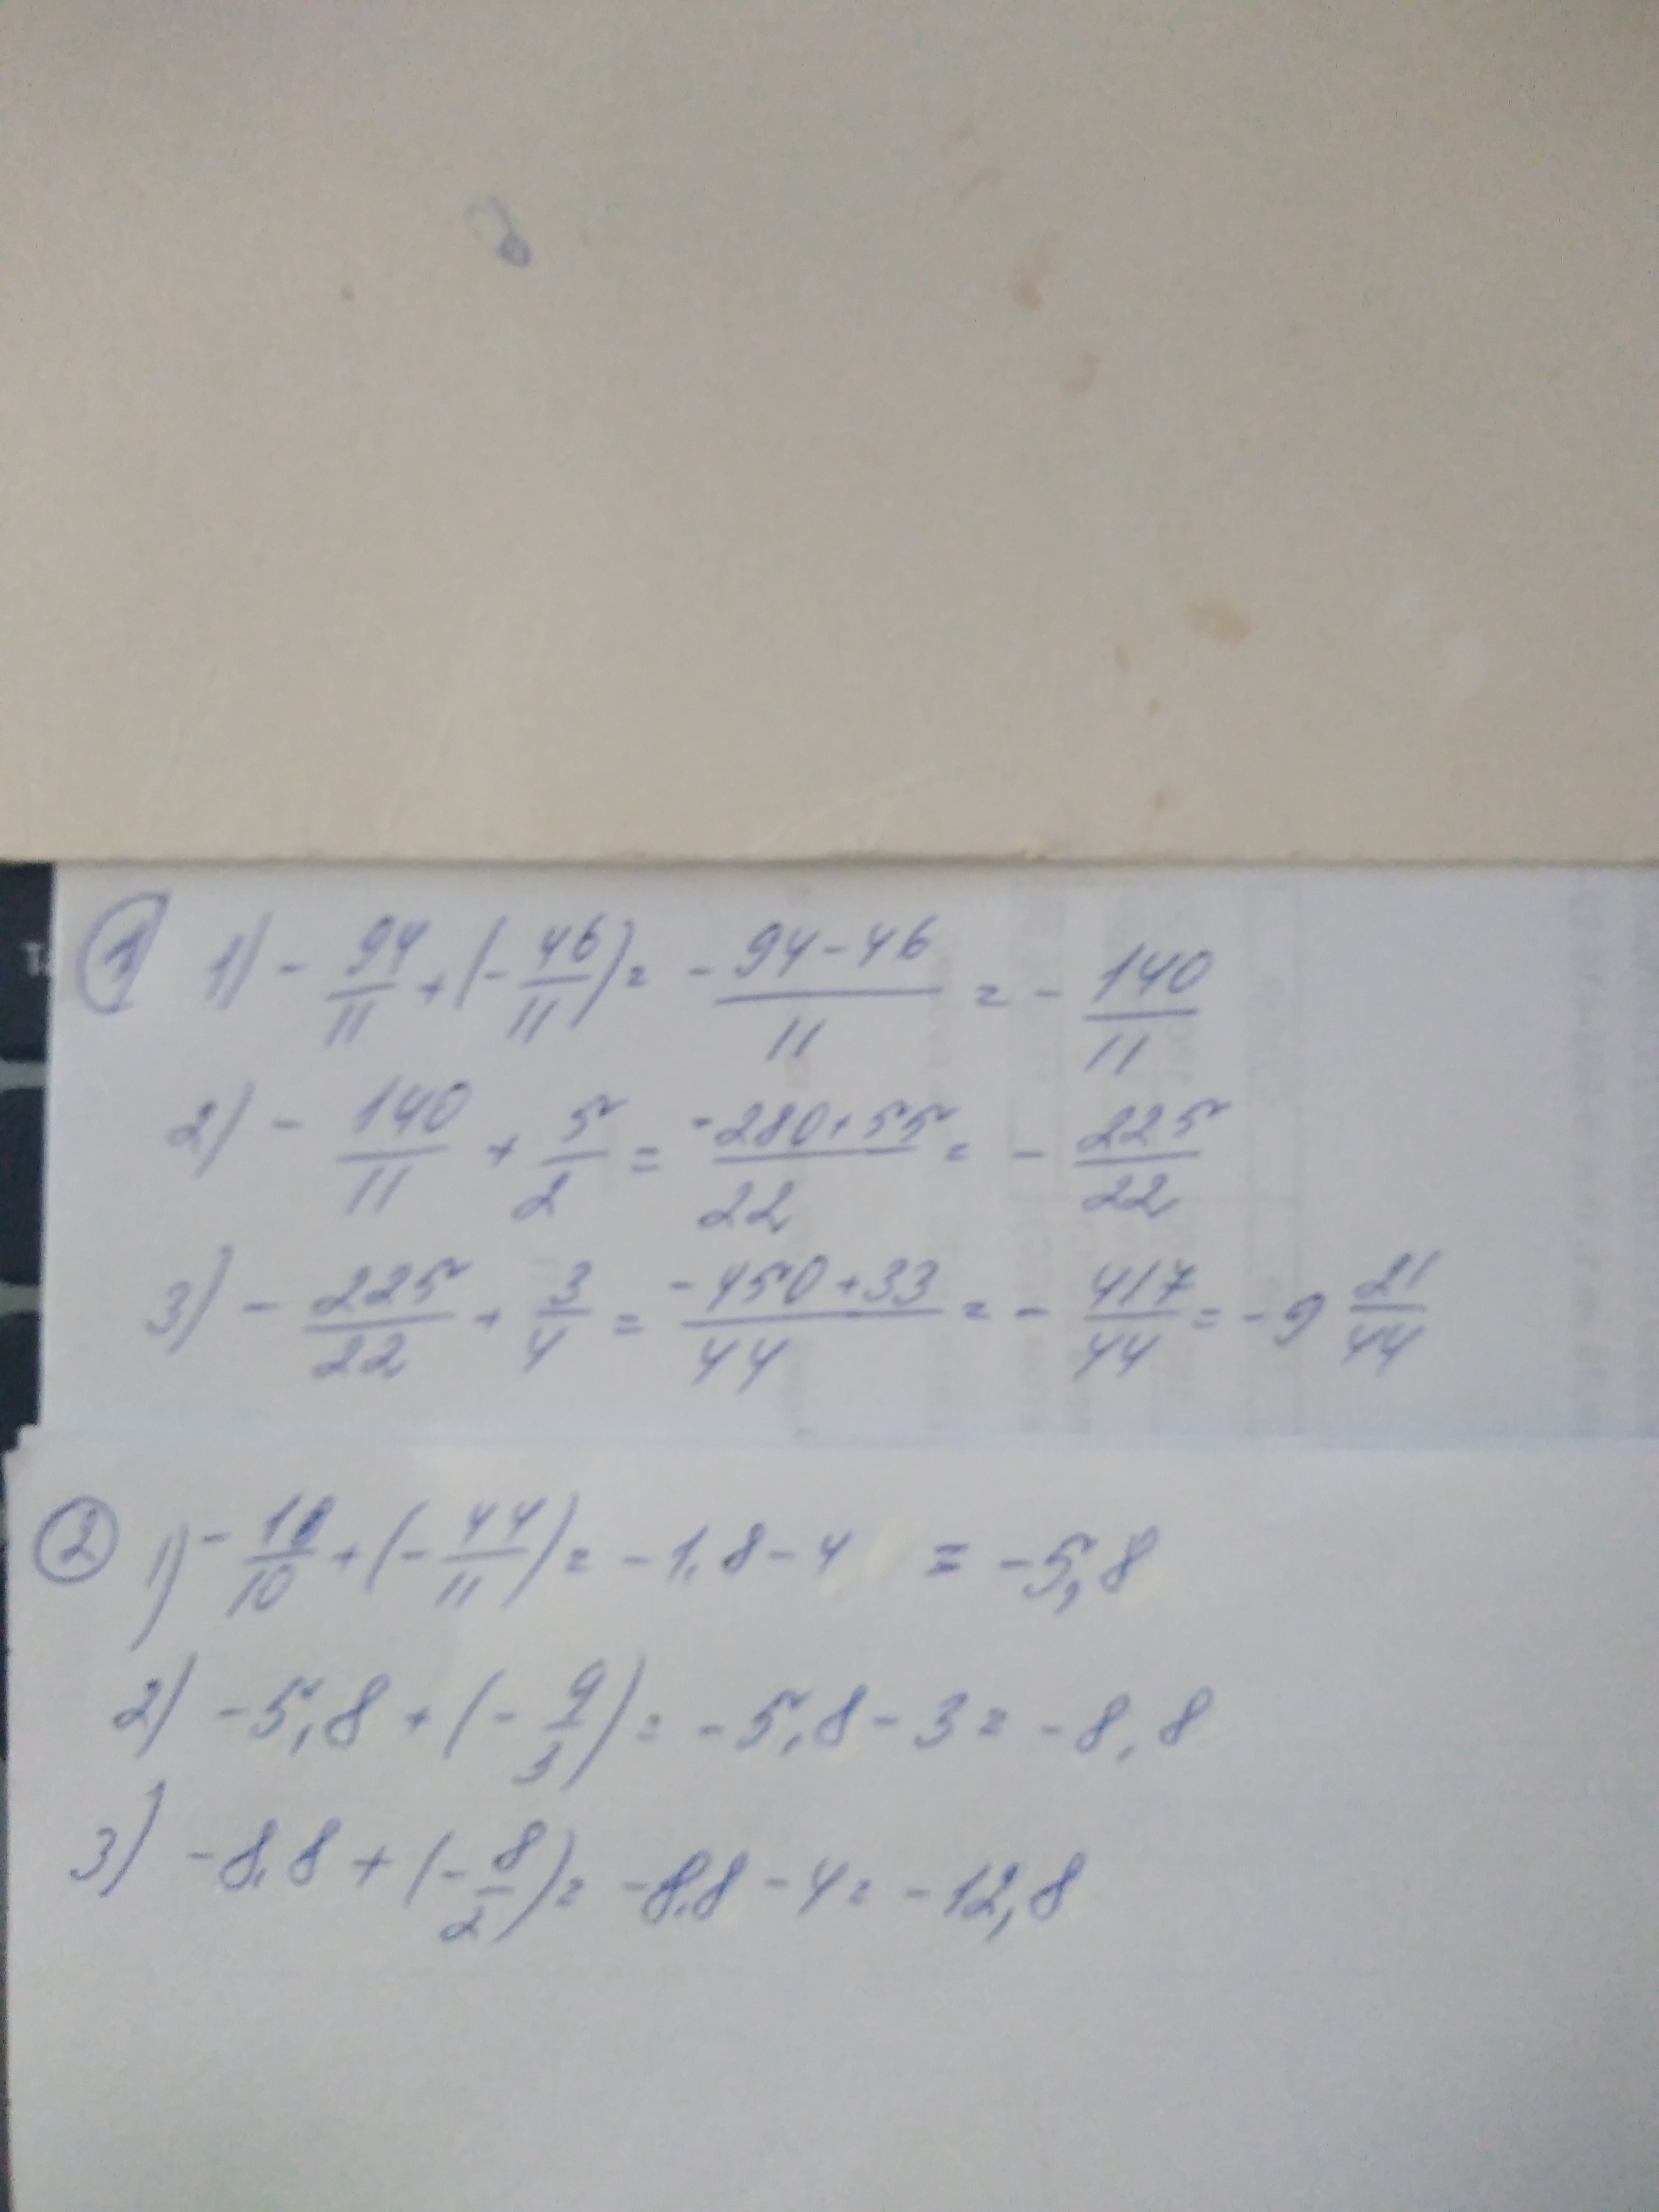 ① 1) - 94/11 + (- 46/11) = - 94-46/11 = - 140/11
2) - 140/11 + 5/2 = -280+55/22 = - 225/22
3) - 225/22 + 3/4 = -450+33/44 = - 417/44 = -9 21/44
② 1) - 18/10 + (- 44/11) = -1.8-4 = -5,8
2) -5,8 + (- 9/3) = -5,8-3 = -8,8
3) -8.8 + (- 8/2) = -8.8-4 = -12,8